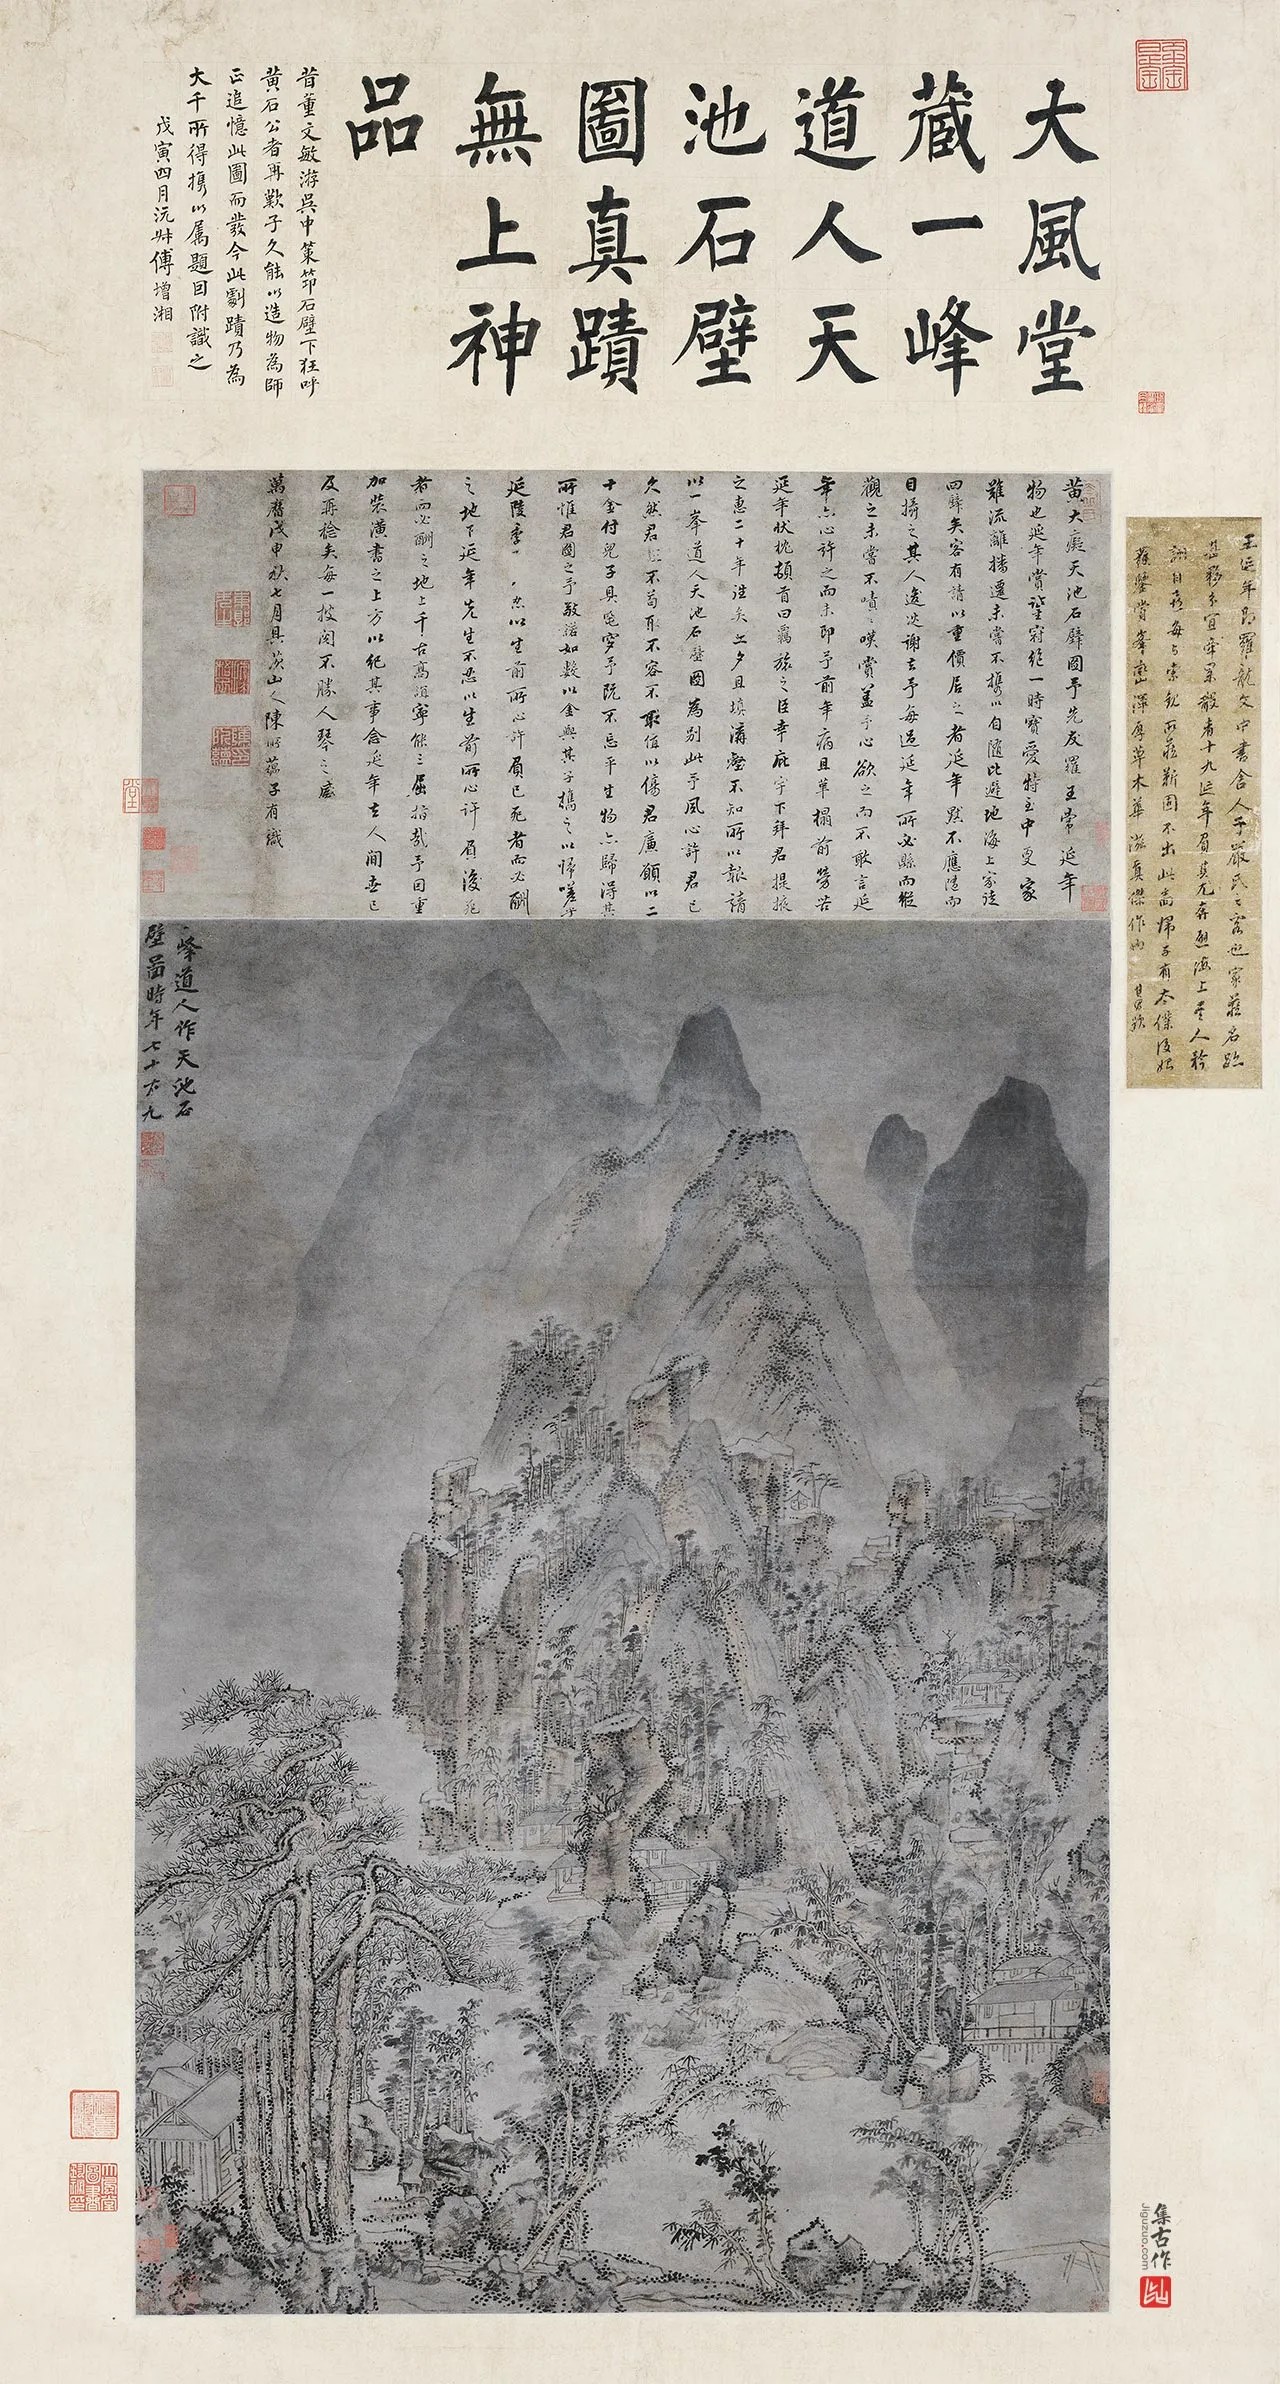 大風堂
藏一峰
道人天
池石壁
圖真蹟
無上神
品
昔董文敏游吳中策筇石壁下狂呼
黃石公者再歎子久能以造物為師
正追憶此圖而發今此劇蹟乃為
大千所得攜以屬題因附識之
戊寅四月沅叔傅增湘
黃大癡天池石壁圖予先友羅王常延年
物也延年賞鑒冠絕一時寶愛特至中更家
難流離播遷未嘗不攜以自隨比避地海上家徒
四壁矣客有請以重價居之者延年默不應第而
目攝之其人逡巡謝去予每過延年所必縣而縱
觀之未嘗不嘖嘖嘆賞蓋予心欲之而不敢言延
年亦心許之而未即予前年病且革榻前勞苦
延年伏枕頓首曰羈旅之臣幸庇宇下拜君提振
之惠二十年往矣旦夕且填溝壑不知所以報請
以一峯道人天池石壁圖為別此予夙心許君已
久然君 不苟取不容不取值以傷君廉願以二
十金付兒子具窀穸予阮不忘平生物亦歸得其
所惟君圖之予敬諾如數以金與其子攜之以歸嗟乎
延陵季 不忍以生前所心許負已死者而必酬
之地下延年先生不忍以生前所心許負後死
者而必酬之地上千古高誼寧能三屈指哉予因重
加裝潢書之上方以紀其事念延年去人間世已
及再稔矣每一披閱不勝人琴之感
萬曆戊申秋七月具茨山人陳所蘊子有識
一峰道人作天池石
壁圖時年七十有九
王延年即羅龍文中書舍人子嚴氏之客也家藏名跡
集古作
Jiguzuo.com